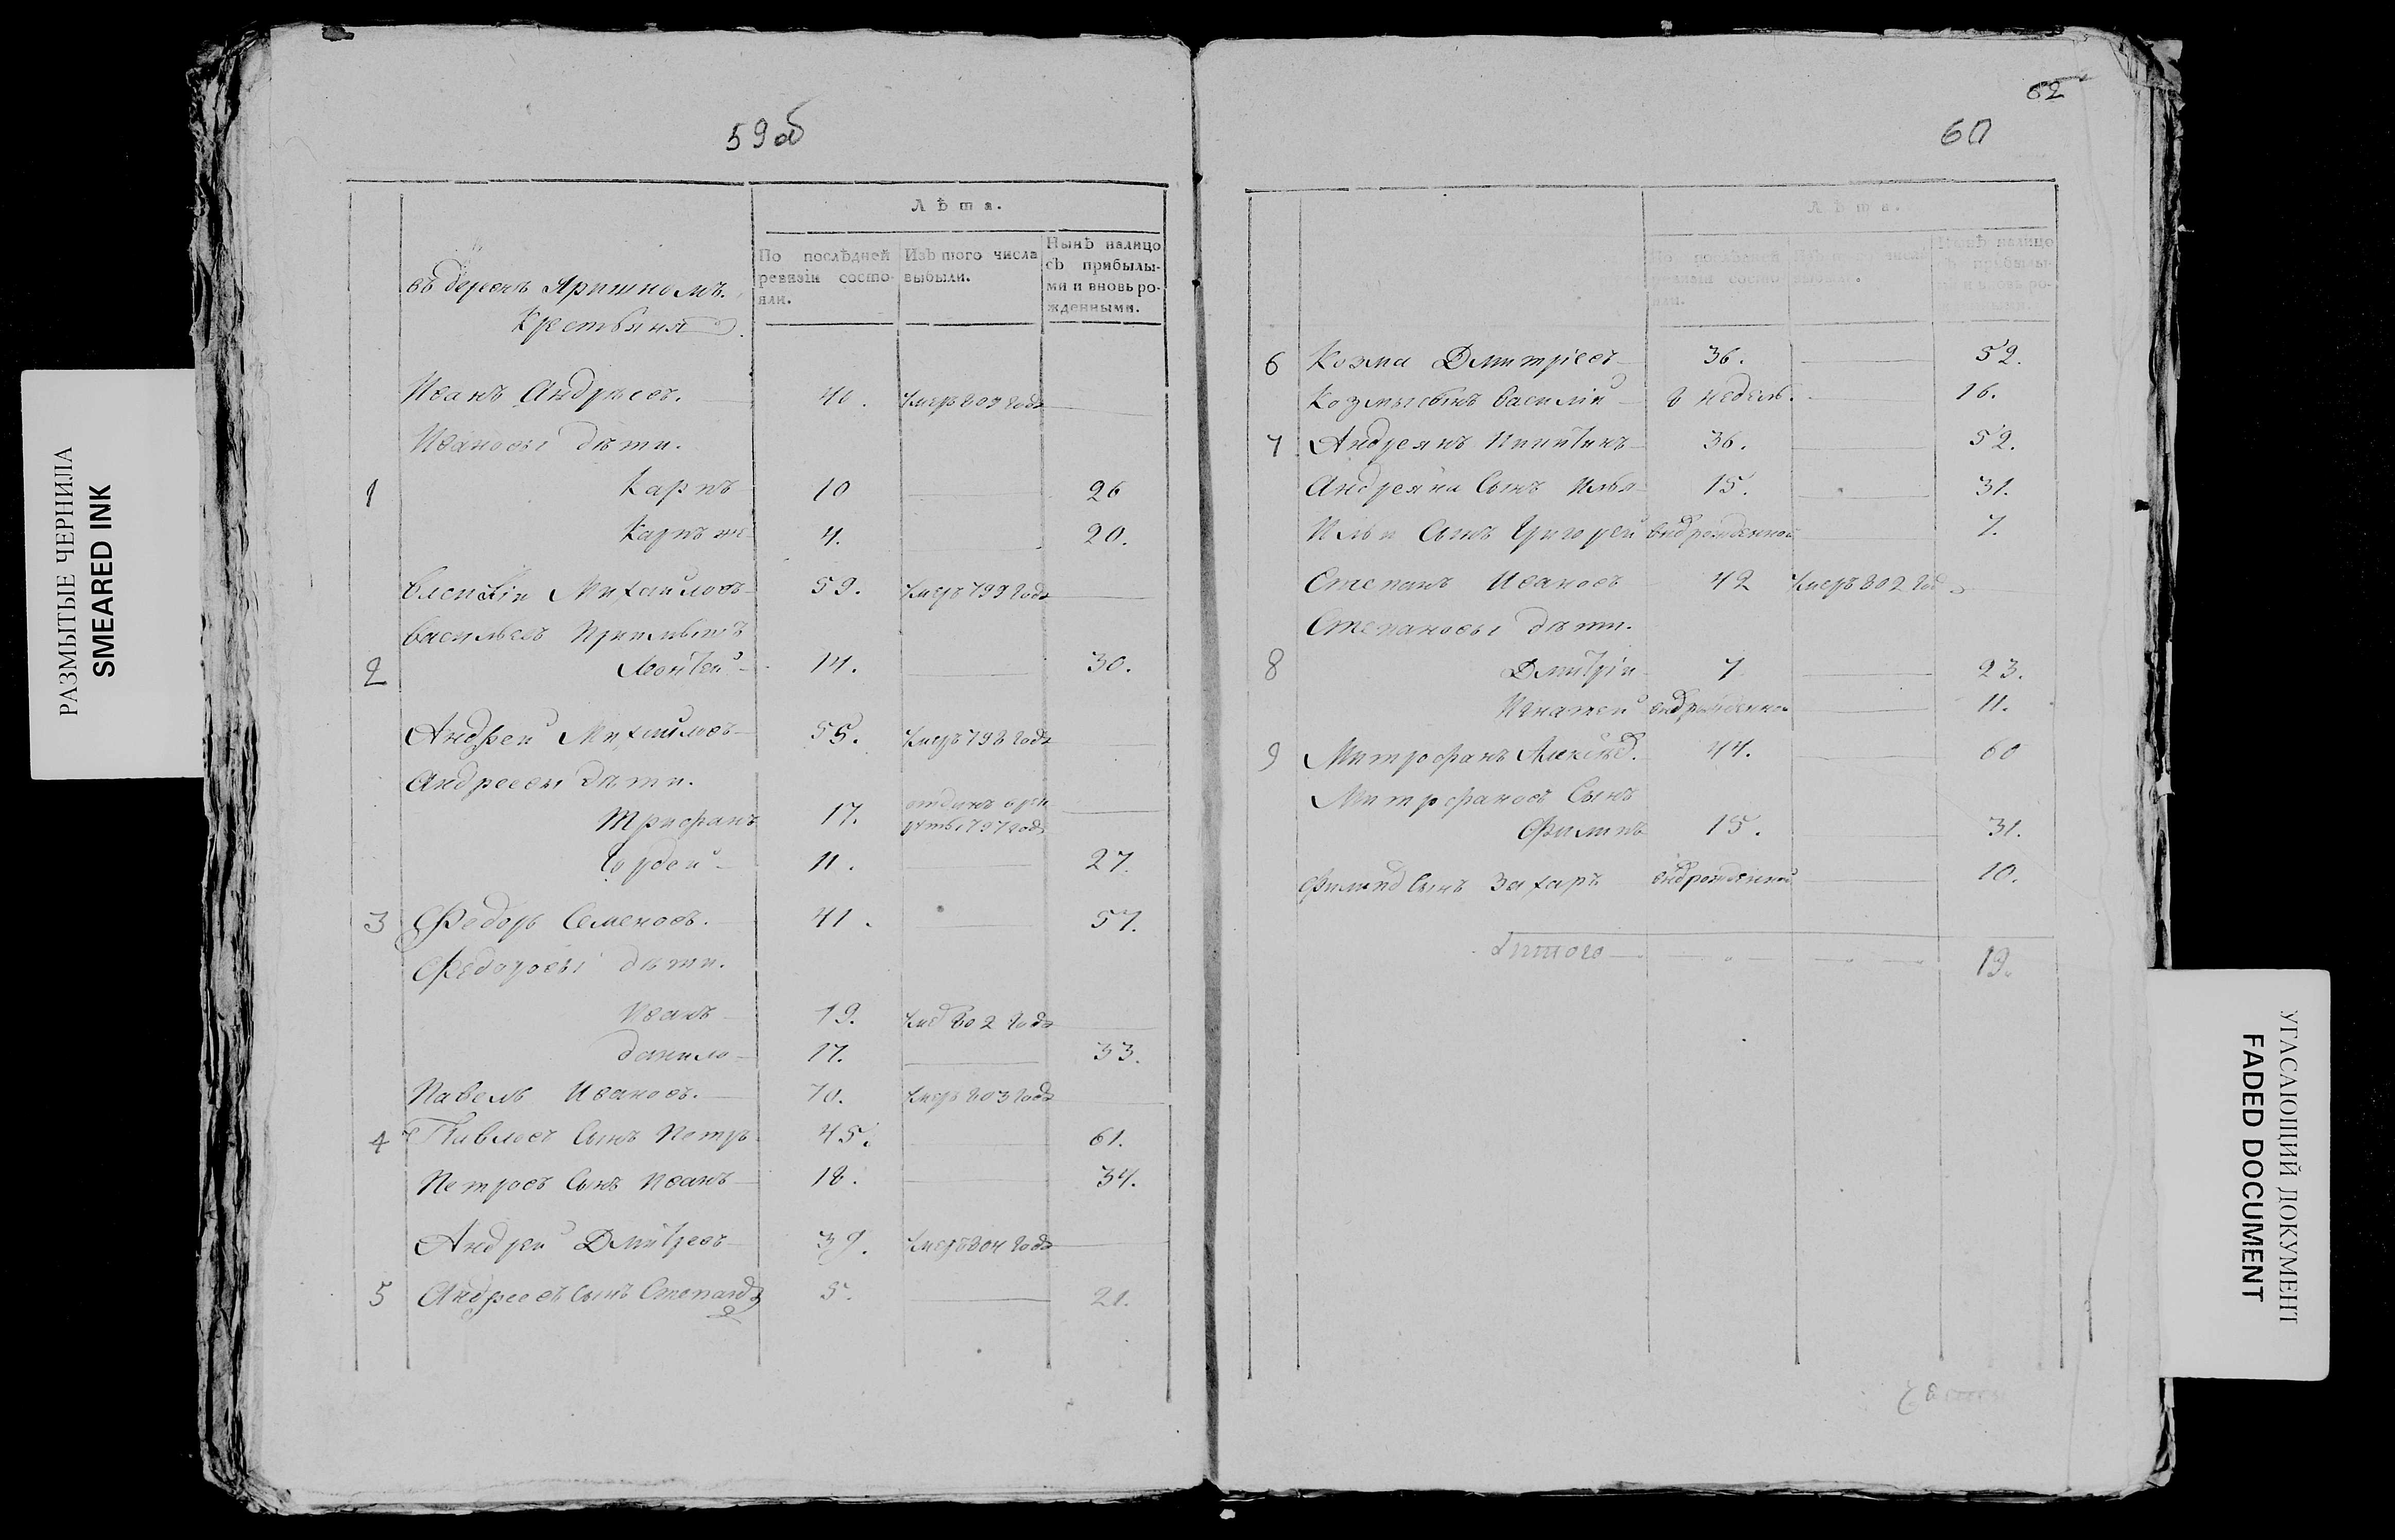 59об
Лѣта.
По послѣдней ревизіи состояли.
Изъ того числа выбыли.
Нынѣ налицо съ прибылыми и вновь рожденными.
въ деревнѣ
Крестьяня
Иванъ Андрѣевъ. 40. умеръ 809 года
Ивановы дѣти.
1 Карпъ 10 26
Карпъ же 4. 20.
Василій Михайловъ 59. умеръ 799 года
Васильевъ
2 14. 30.
Андрей Михайловъ 55. умеръ 798 года
Андреевы дѣти.
Трифанъ 17. отданъ в рекруты 797 года
Гордей 11. 27.
3 Федоръ Семеновъ. 41. 57.
Федоровы дѣти.
Иванъ 19. умеръ 802 года
Данило 17. 33.
Павелъ Ивановъ. 70. умеръ 803 года
4 Павловъ сынъ Петръ 45. 61.
Петровъ сынъ Иванъ 18. 34.
Андрей Дмитревъ 39. умеръ 804 года
5 Андреевъ сынъ Степанъ 5. 21.
62
60
Лѣта.
По послѣдней ревизіи состояли.
Изъ того числа выбыли.
Нынѣ налицо съ прибылыми и вновь рожденными.
6 Козма Дмитріевъ 36. 52.
Козмы сынъ Василій 8 недель. 16.
7 Андреянъ Никитинъ 36. 52.
Андреяна сынъ Илья 15. 31.
Ильи сынъ Григорей внᵒврожденной 7.
Степанъ Ивановъ 42 умеръ 802 года
Степановы дѣти.
8 Дмитрій 7 23.
Игнатей новорожденной 11.
9 Митрофанъ Александ. 44. 60
Митрофановъ сынъ
Филипъ 15. 31.
Филипа сынъ Захаръ новорожденной 10.
Итого 19.
РАЗМЫТЫЕ ЧЕРНИЛА
SMEARED INK
УГАСАЮЩИЙ ДОКУМЕНТ
FADED DOCUMENT